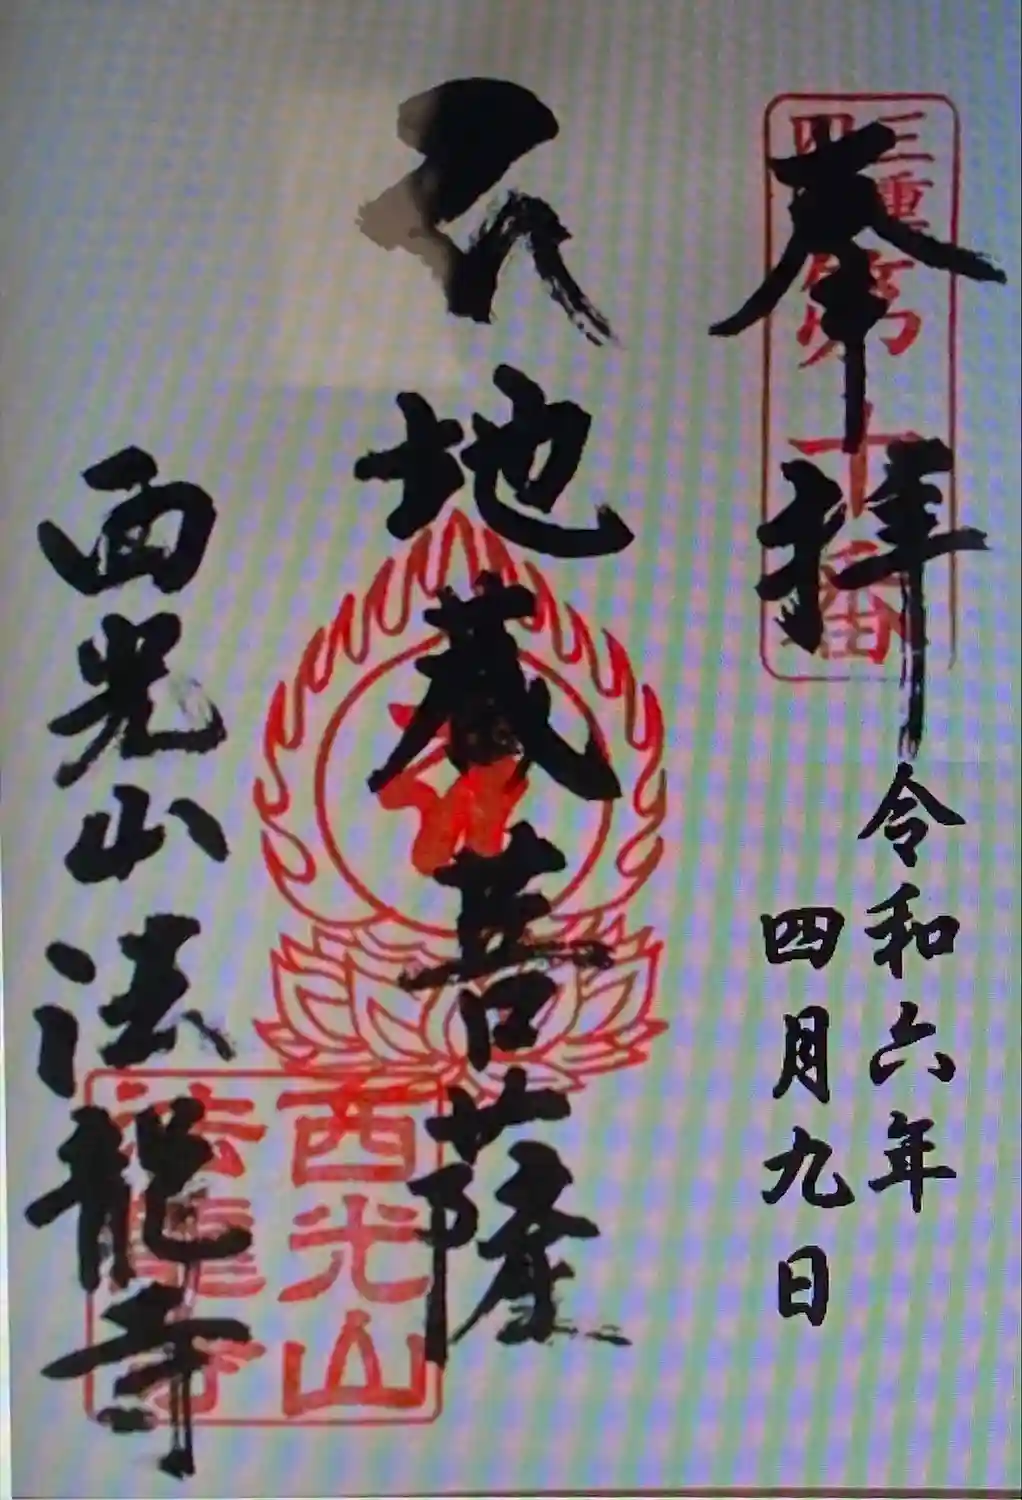 奉拝
三重四国第十番
令和六年
四月九日
地蔵菩薩
西光山
法龍寺
西光山法龍寺